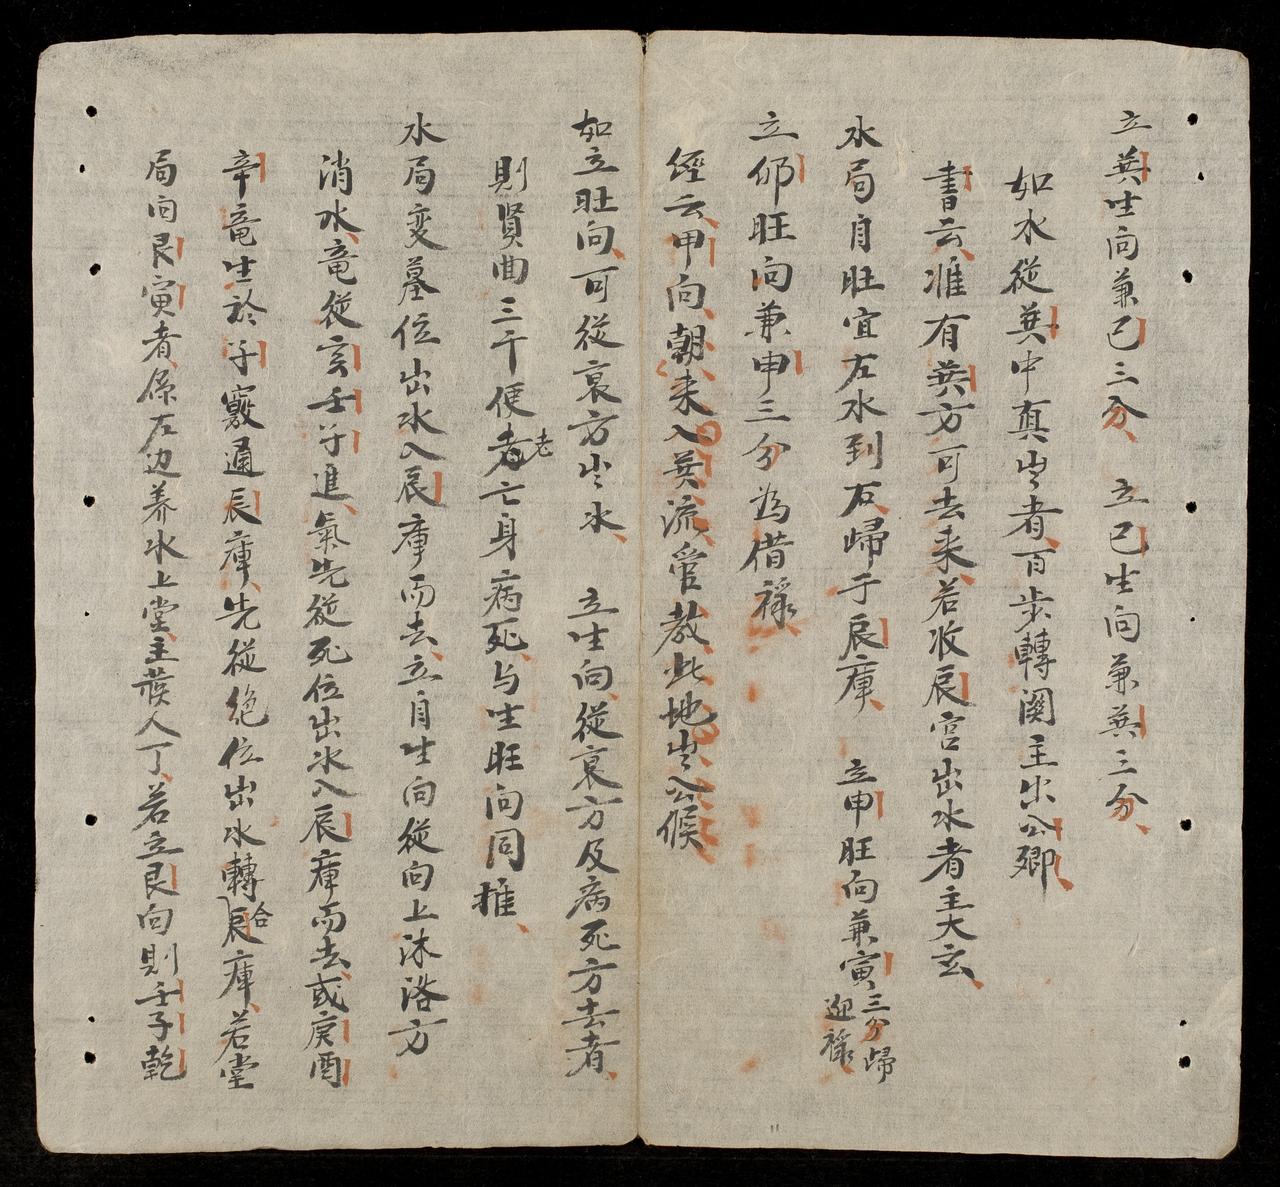 立巽生向兼巳三分 立巳生向兼巽三分
如水従巽中真出者百步轉闌主出公卿
書云准有巽方可去来若收辰宮出水者主大玄
水局自旺宜左水到右歸于辰庫 立甲旺向兼寅三分歸迎祿
立卯旺向兼申三分為借祿
經云甲向朝来入巽流管教此地出公候
如立旺向可従衰方出水 立生向従衰方及病死方去者
則賢曲三干便老亡身病死与生旺向同推
水局变墓位出水入辰庫而去立自生向従向上沐浴方
消水竜従亥壬子進氣先従死位出水入辰庫而去或庚酉
辛竜生於子竅通辰庫先従絶位出水轉合辰庫若堂
局向艮寅者係左边养水上堂主發人丁若立艮向則壬子乾